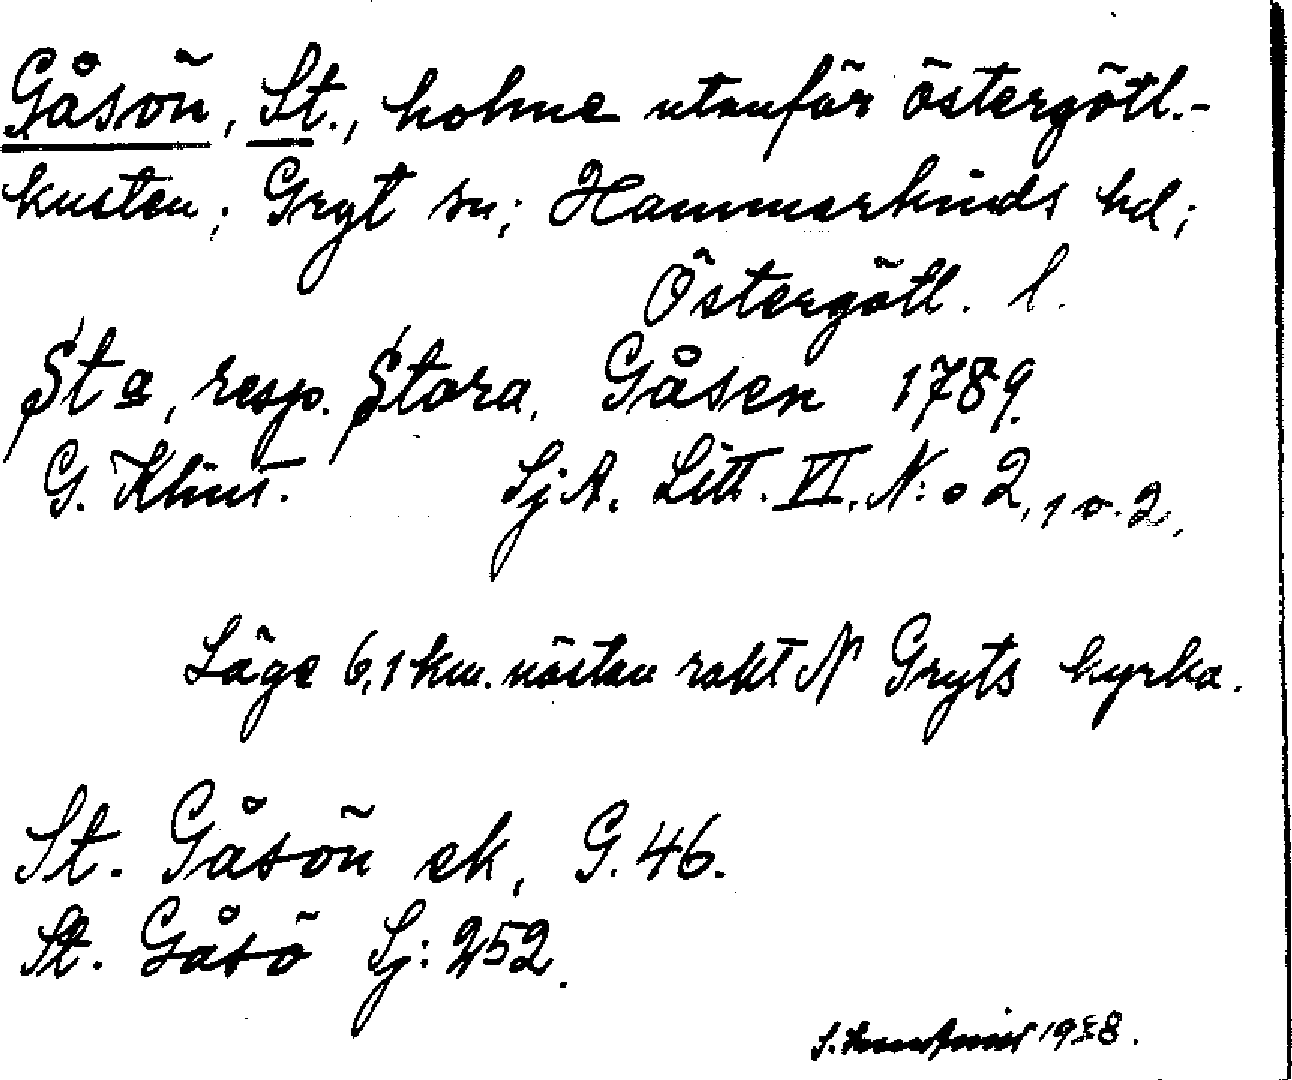 Gåsön, St., holme utanför östergötl.-
kusten; Gryt sn; Hammarkinds hd;
Östergötl. l.
St a, resp. Stora, Gåsen 1789.
G. Klint. SjA. Litt. VI. N:o 2, 1 o. 2.
Läge 6,1 km. nästan rakt N Gryts kyrka.
St. Gåsön ek, G. 46.
St. Gåsö Sj: 252.
1938.